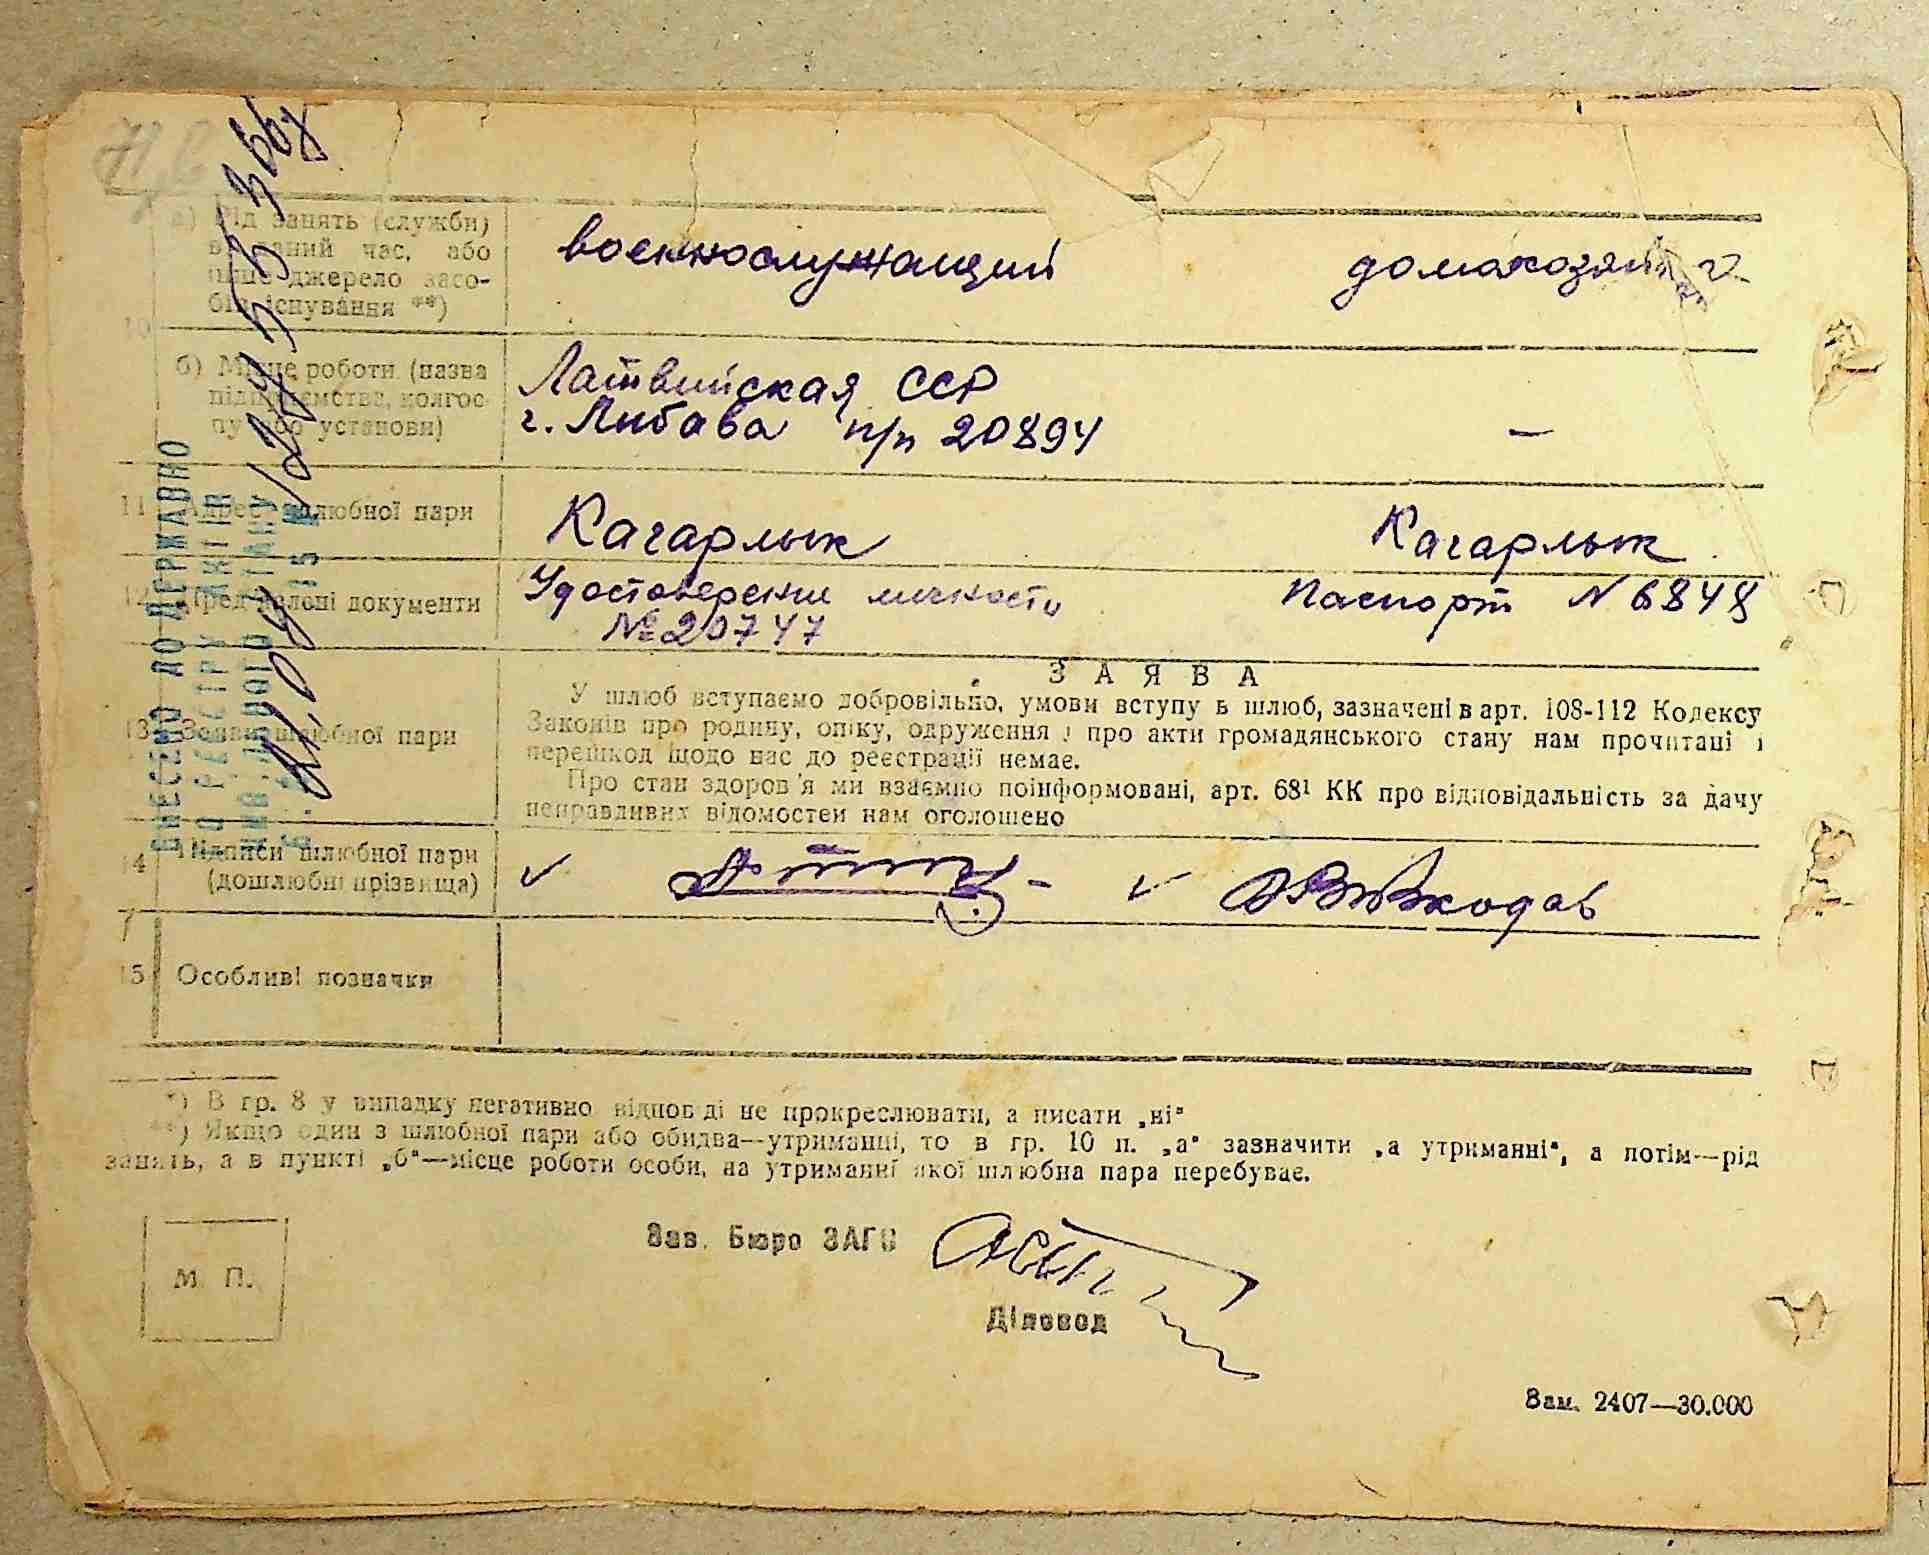 а) Рід занять (служби)
в даний час, або
інше джерело засо-
бів існування **)
военнослужащий домохозяйка
10
б) Місце роботи (назва
підприємства, колгос-
пу або установи)
Латвийская ССР
г. Либава п/п 20894 —
11 Адреса шлюбної пари
Кагарлык Кагарлык
12 Пред'явлені документи
Удостоверение личности Паспорт N 6848
№ 20747
ЗАЯВА
13 Заява шлюбної пари
У шлюб вступаємо добровільно, умови вступу в шлюб, зазначені в арт. 108-112 Кодексу
Законів про родину, опіку, одруження і про акти громадянського стану нам прочитані і
перешкод щодо нас до реєстрації немає.
Про стан здоров'я ми взаємно поінформовані, арт. 68¹ КК про відповідальність за дачу
неправдивих відомостей нам оголошено
14 Підписи шлюбної пари
(дошлюбні прізвища)
15 Особливі позначки
*) В гр. 8 у випадку негативно відповіді не прокреслювати, а писати „ні"
**) Якщо один з шлюбної пари або обидва—утриманці, то в гр. 10 п. „а" зазначити „а утриманні", а потім—рід
занять, а в пункті „б"—місце роботи особи, на утриманні якої шлюбна пара перебуває.
М. П.
Зав. Бюро ЗАГС
Діловод
Зам. 2407—30.000
ВНЕСЕНО ДО ДЕРЖАВНО
ГО РЕЄСТРУ АКТІВ
ЦИВІЛЬНОГО СТАНУ